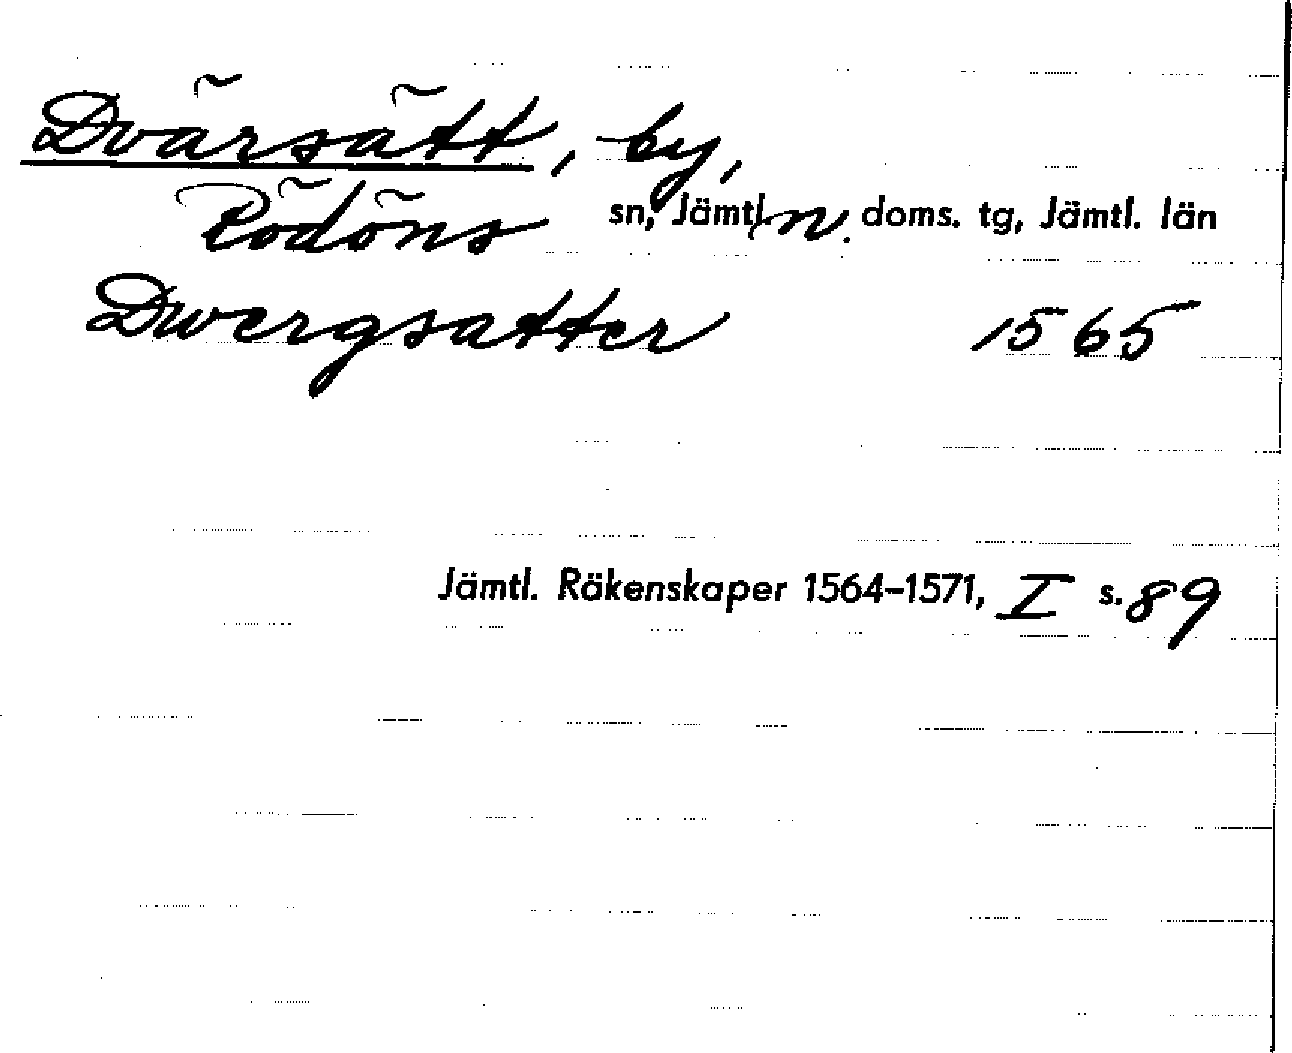 Dvärsätt, by,
Rödöns sn, Jämtl. n. doms. tg, Jämtl. län
Dwergsatter 1565
Jämtl. Räkenskaper 1564-1571, I s. 89